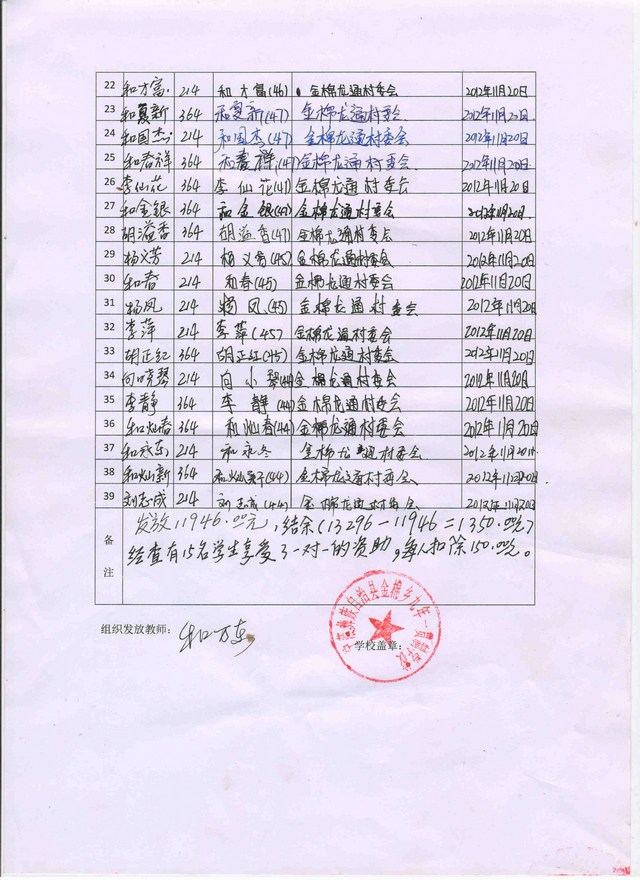 22 和才富 214 和才富(46) 金棉龙通村委会 2012年11月20日
23 和夏新 364 和夏新(47) 金棉龙通村委会 2012年11月20日
24 和国杰 214 和国杰(47) 金棉龙通村委会 2012年11月20日
25 和春祥 364 金棉龙通村委会 2012年11月20日
26 李仙花 364 李仙花(47) 金棉龙通村委会 2012年11月20日
27 和金银 364 和金银(47) 金棉龙通村委会 2012年11月20日
28 胡溢香 364 胡溢香(47) 金棉龙通村委会 2012年11月20日
29 杨义芳 214 杨义芳(45) 金棉龙通村委会 2012年11月20日
30 和春 214 和春(45) 金棉龙通村委会 2012年11月20日
31 杨凤 214 杨凤(45) 金棉龙通村委会 2012年11月20日
32 李萍 214 李萍(45) 金棉龙通村委会 2012年11月20日
33 胡正红 364 胡正红(45) 金棉龙通村委会 2012年11月20日
34 向晓琴 214 向小琴(44) 金棉龙通村委会 2012年11月20日
35 李静 364 李静(44) 金棉龙通村委会 2012年11月20日
36 和灿春 364 和灿春(44) 金棉龙通村委会 2012年11月20日
37 和永东 214 和永冬 金棉龙通村委会 2012年11月20日
38 和灿新 364 和灿新(44) 金棉龙通村委会 2012年11月20日
39 刘志成 214 刘志成(44) 金棉龙通村委会 2012年11月20日
备注
发放11946.00元,结余(13296-11946=1350.00元)
经查有15名学生享受了一对一的资助,每人扣除150.00元。
组织发放教师:
学校盖章:
族自治县金棉乡九年一贯制学校